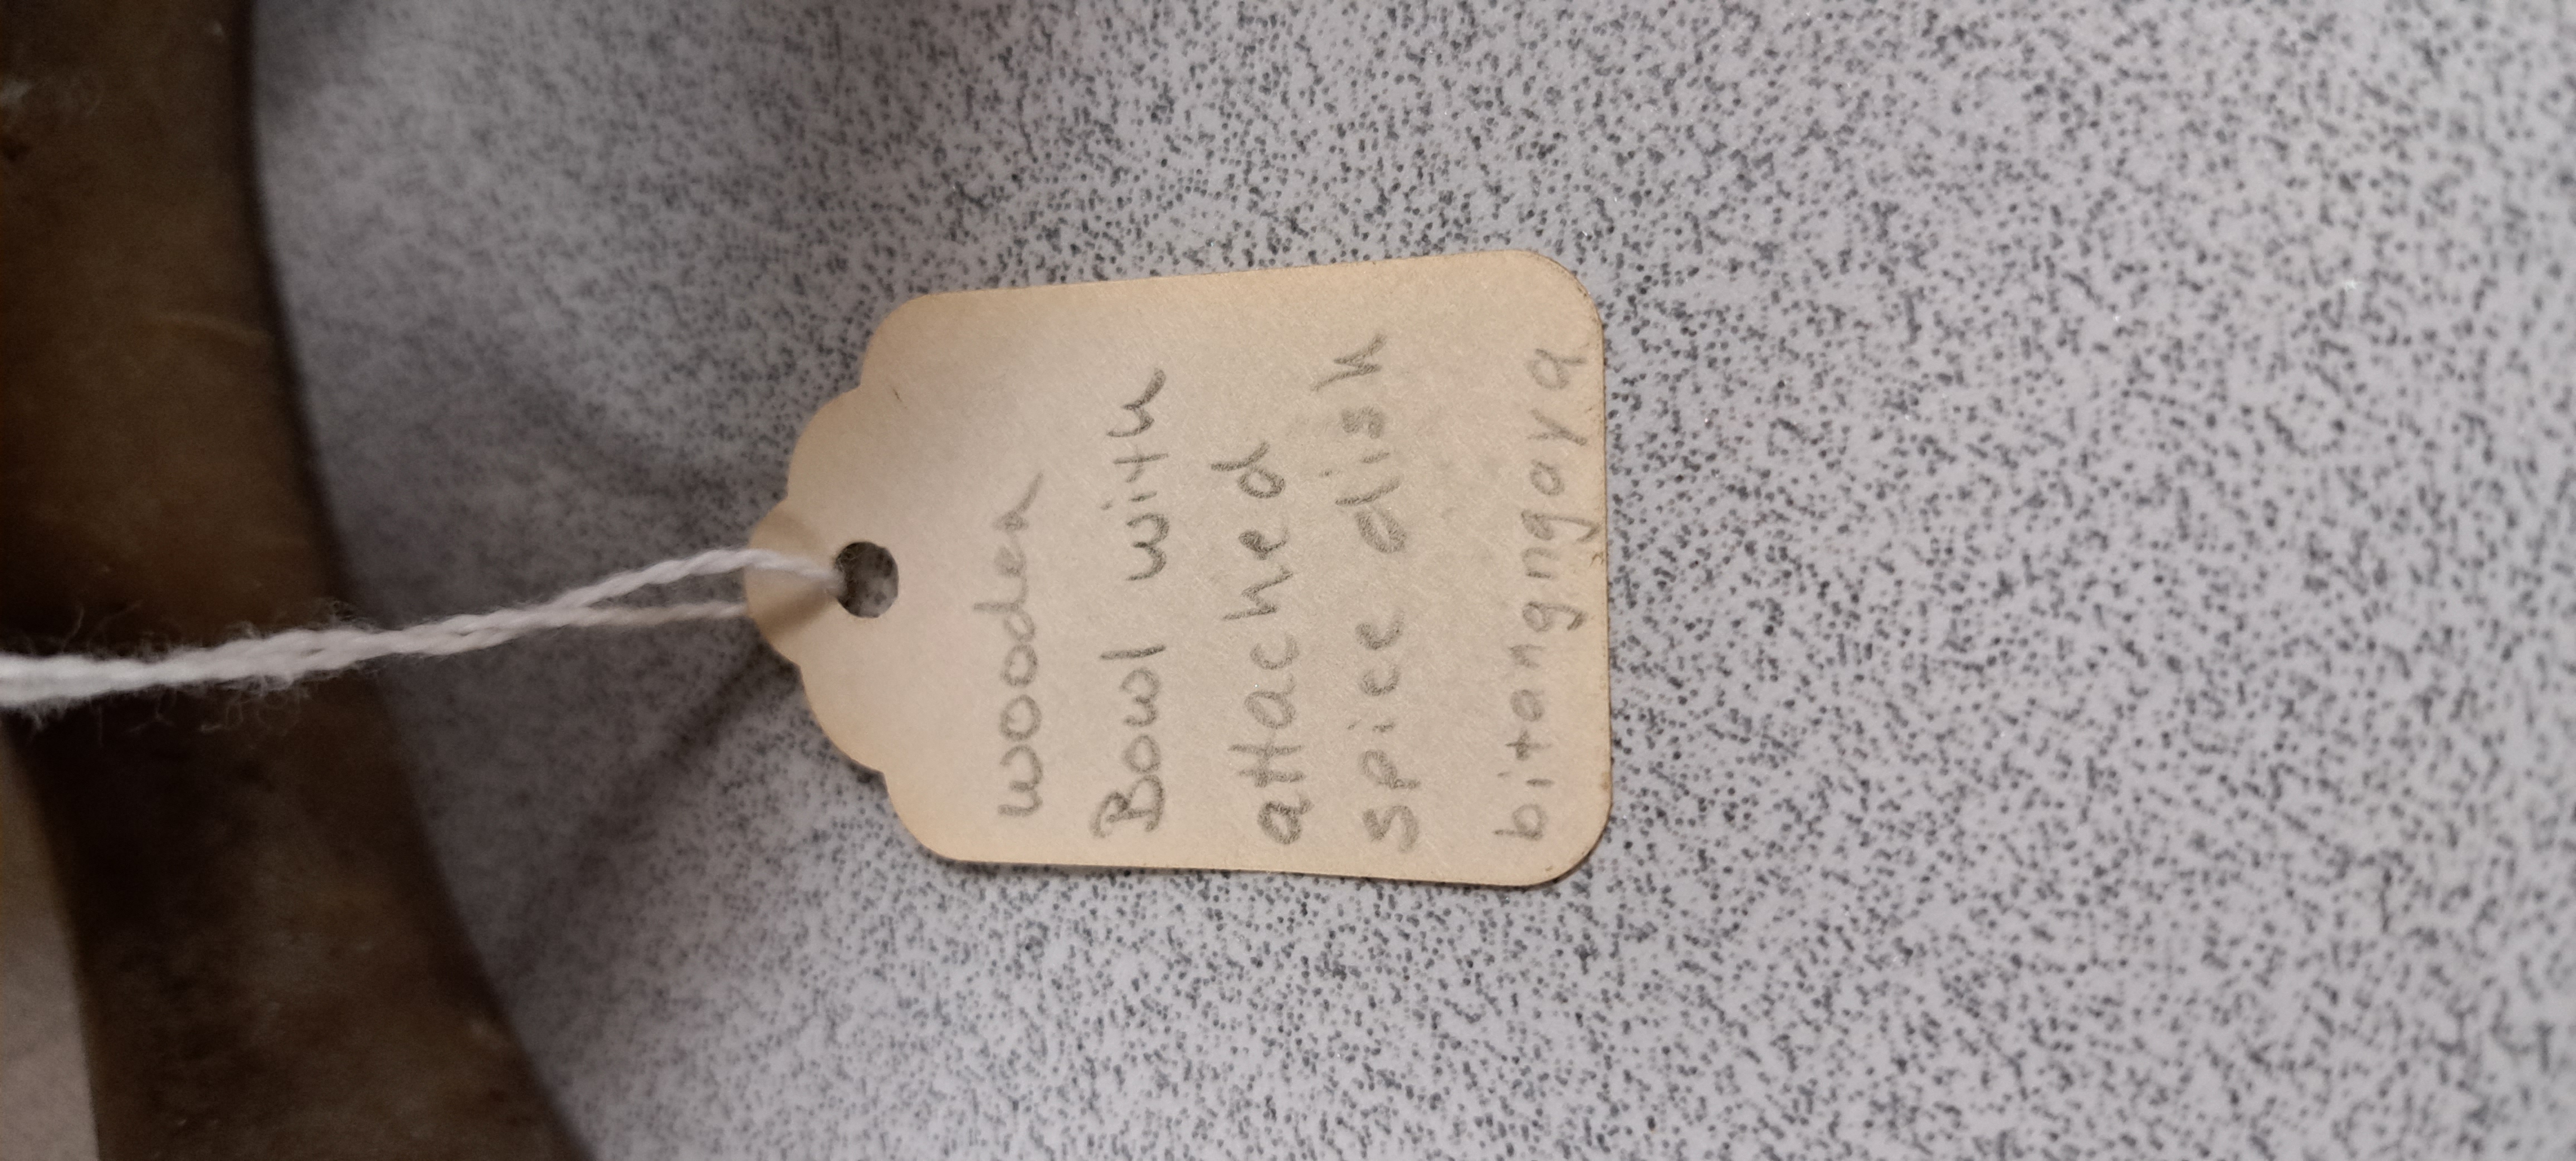 wooden
Bowl with
attached
spice dish
bitangngaya